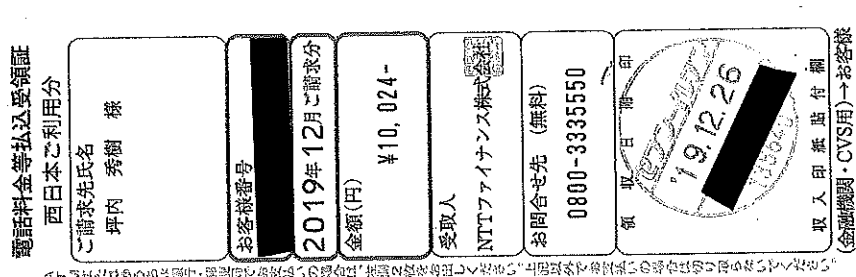 電話料金等払込受領証
西日本ご利用分
ご請求先氏名
坪内 秀樹 様
お客様番号
2019年12月ご請求分
金額(円)
¥10,024-
受取人
NTTファイナンス株式会社
お問合せ先 (無料)
0800-3335550
領収日附印
セブン-イレブン
'19.12.26
収入印紙貼付欄
(金融機関・CVS用)→お客様